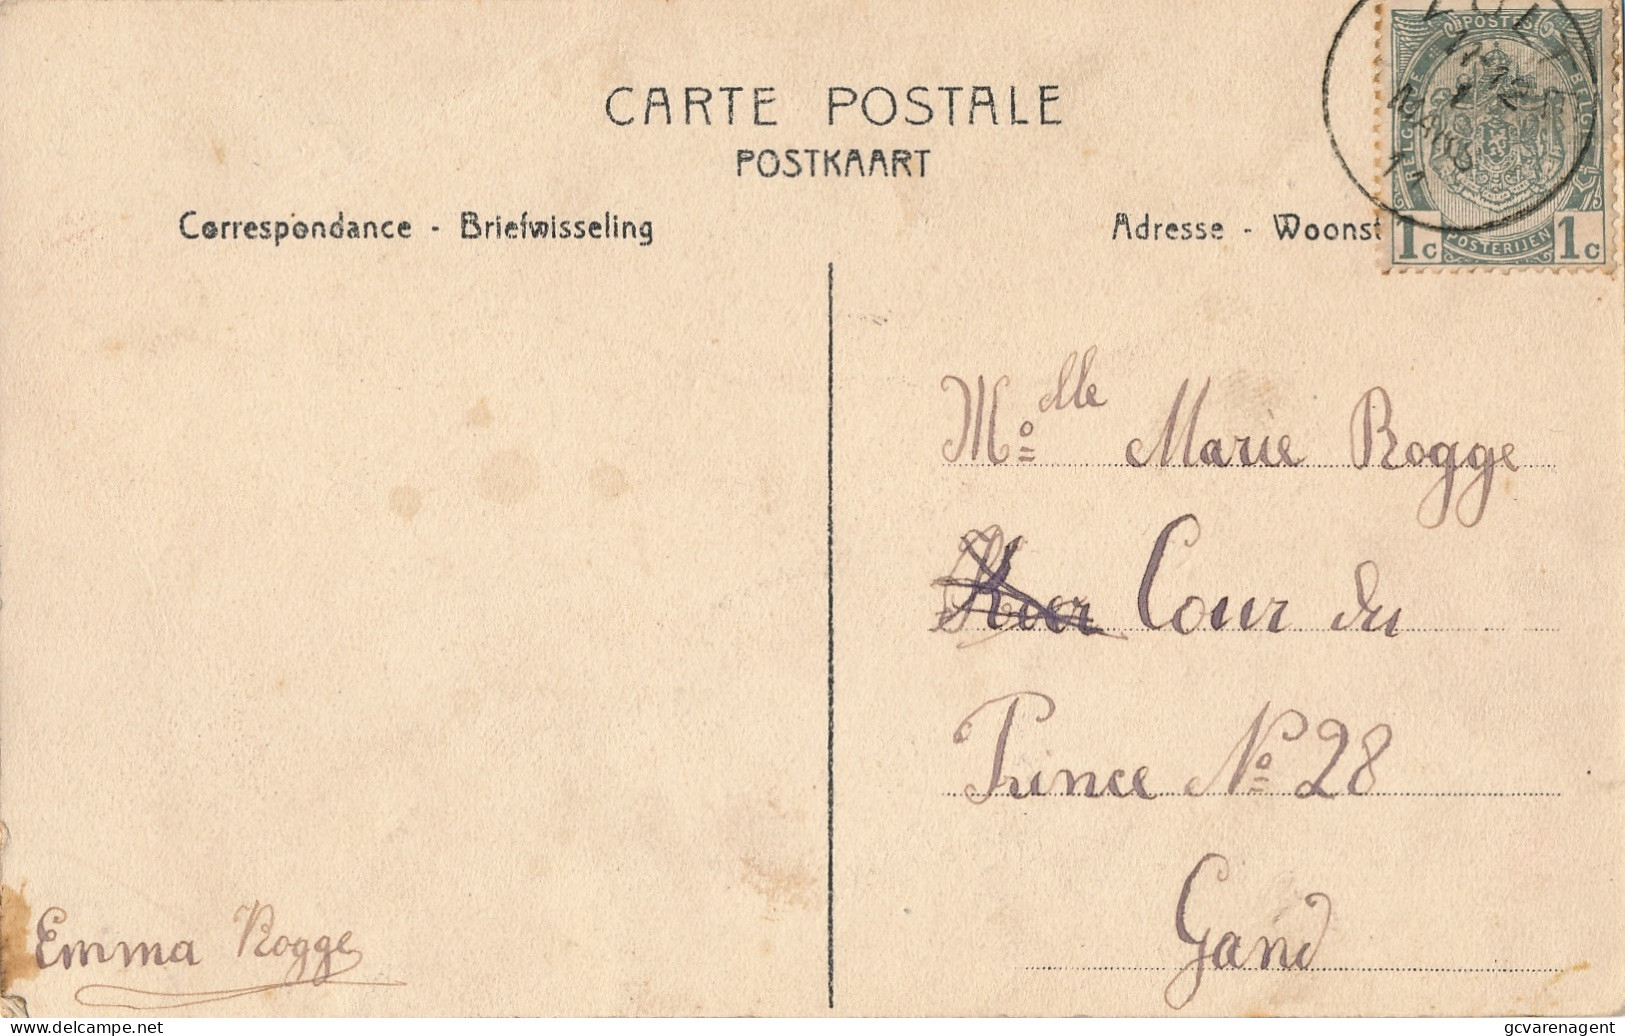 CARTE POSTALE
POSTKAART
Correspondance - Briefwisseling
Adresse - Woonst
POSTES
BELGIQUE BELGIË
POSTERIJEN
1c 1c
MARS
11
Mo.lle Marie Rogge
Cour du
Prince No 28
Gand
Emma Rogge
delcampe.net
gcvarenagent